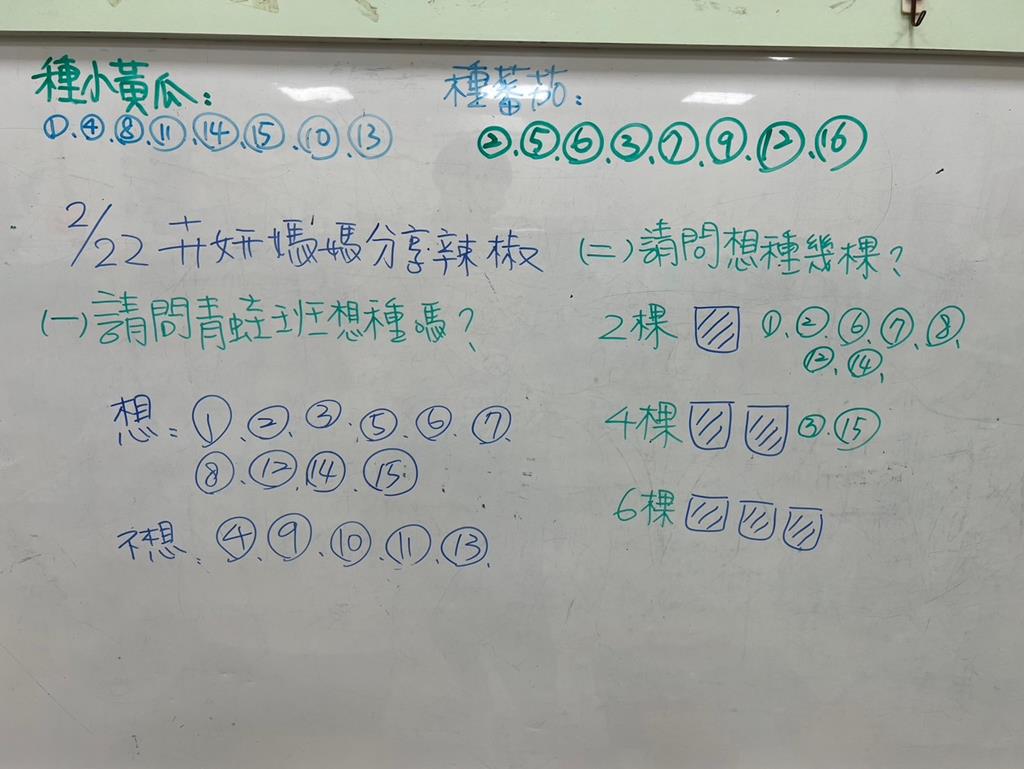 種小黃瓜：
①、④、⑧、⑪、⑭、⑮、⑩、⑬
種蕃茄：
②、⑤、⑥、③、⑦、⑨、⑫、⑯
2/22 卉妍媽媽分享辣椒
(一)請問青蛙班想種嗎？
想：①、②、③、⑤、⑥、⑦、
⑧、⑫、⑭、⑮
不想：④、⑨、⑩、⑪、⑬、
(二)請問想種幾棵？
2棵 ①、②、⑥、⑦、⑧、
⑫、⑭、
4棵 ③、⑮
6棵